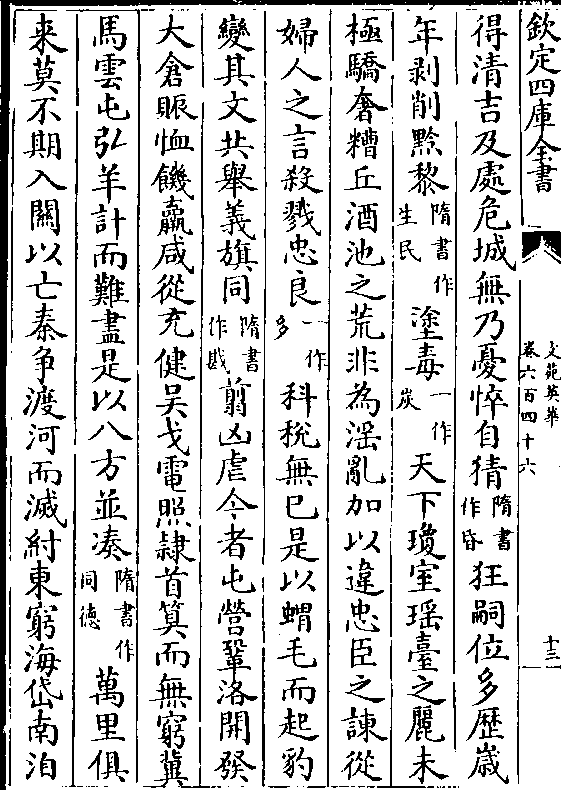 欽定四庫全書
文苑英華
卷六百四十六
十三
得清吉及處危城無乃憂悴自猜隋書作昏狂嗣位多歴歳
年剥削黔黎隋書作生民塗毒一作炭天下瓊室瑶臺之麗未
極驕奢糟丘酒池之荒非為淫亂加以違忠臣之諫從
婦人之言殺戮忠良一作多科稅無已是以蝟毛而起豹
變其文共舉義旗同隋書作戡翦凶虐今者屯營鞏洛開發
大倉賑恤饑羸咸從充健吴戈電照隷首筭而無窮冀
馬雲屯弘羊計而難盡是以八方並凑隋書作同德萬里俱
来莫不期入關以亡秦争渡河而滅紂東窮海岱南洎